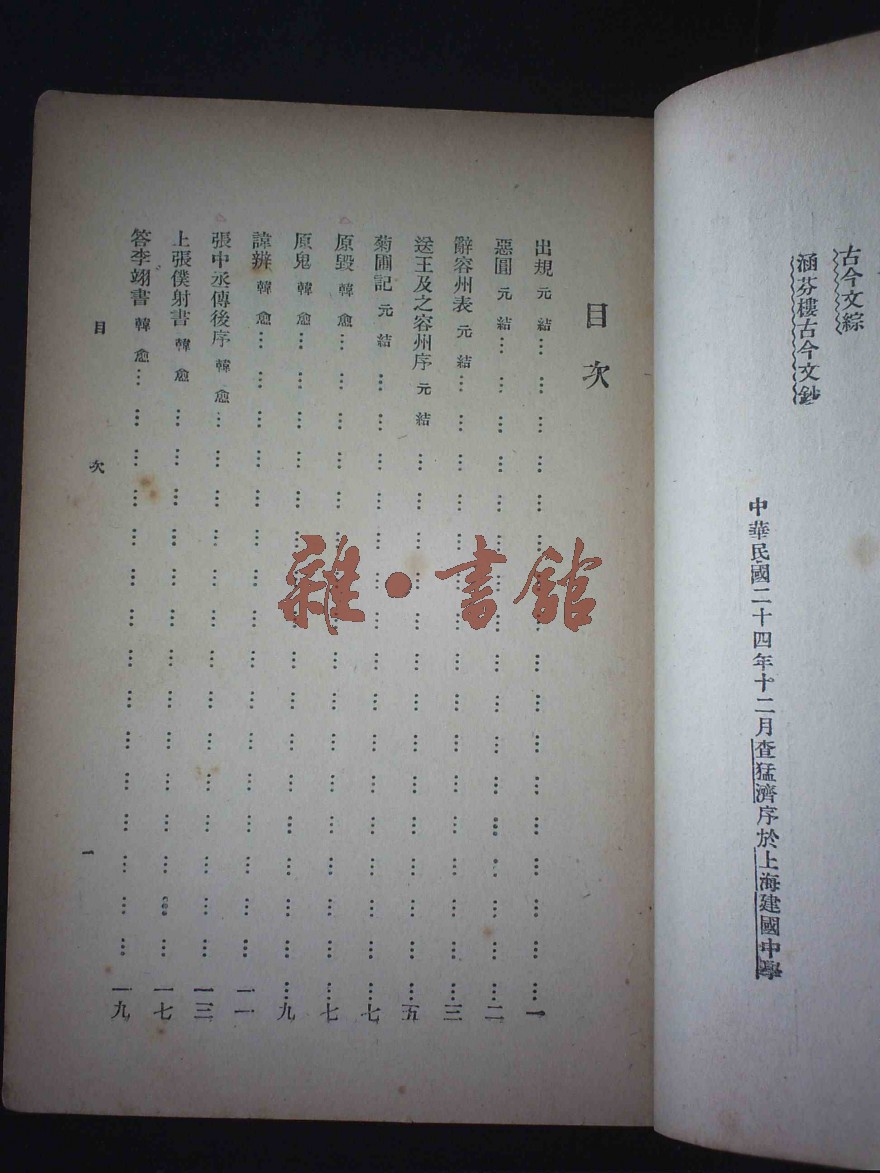 古今文綜
涵芬樓古今文鈔
中華民國二十四年十二月查猛濟序於上海建國中學
目次
出規 元結 … … … … … … … … … … … … … 一
惡圓 元結 … … … … … … … … … … … … … 二
辭容州表 元結 … … … … … … … … … … … … 三
送王及之容州序 元結 … … … … … … … … … … 五
菊圃記 元結 … … … … … … … … … … … … 七
原毀 韓愈 … … … … … … … … … … … … … 七
原鬼 韓愈 … … … … … … … … … … … … … 九
諱辨 韓愈 … … … … … … … … … … … … … 一一
張中丞傳後序 韓愈 … … … … … … … … … … … 一三
上張僕射書 韓愈 … … … … … … … … … … … 一七
答李翊書 韓愈 … … … … … … … … … … … … 一九
目次
一
雜·書館